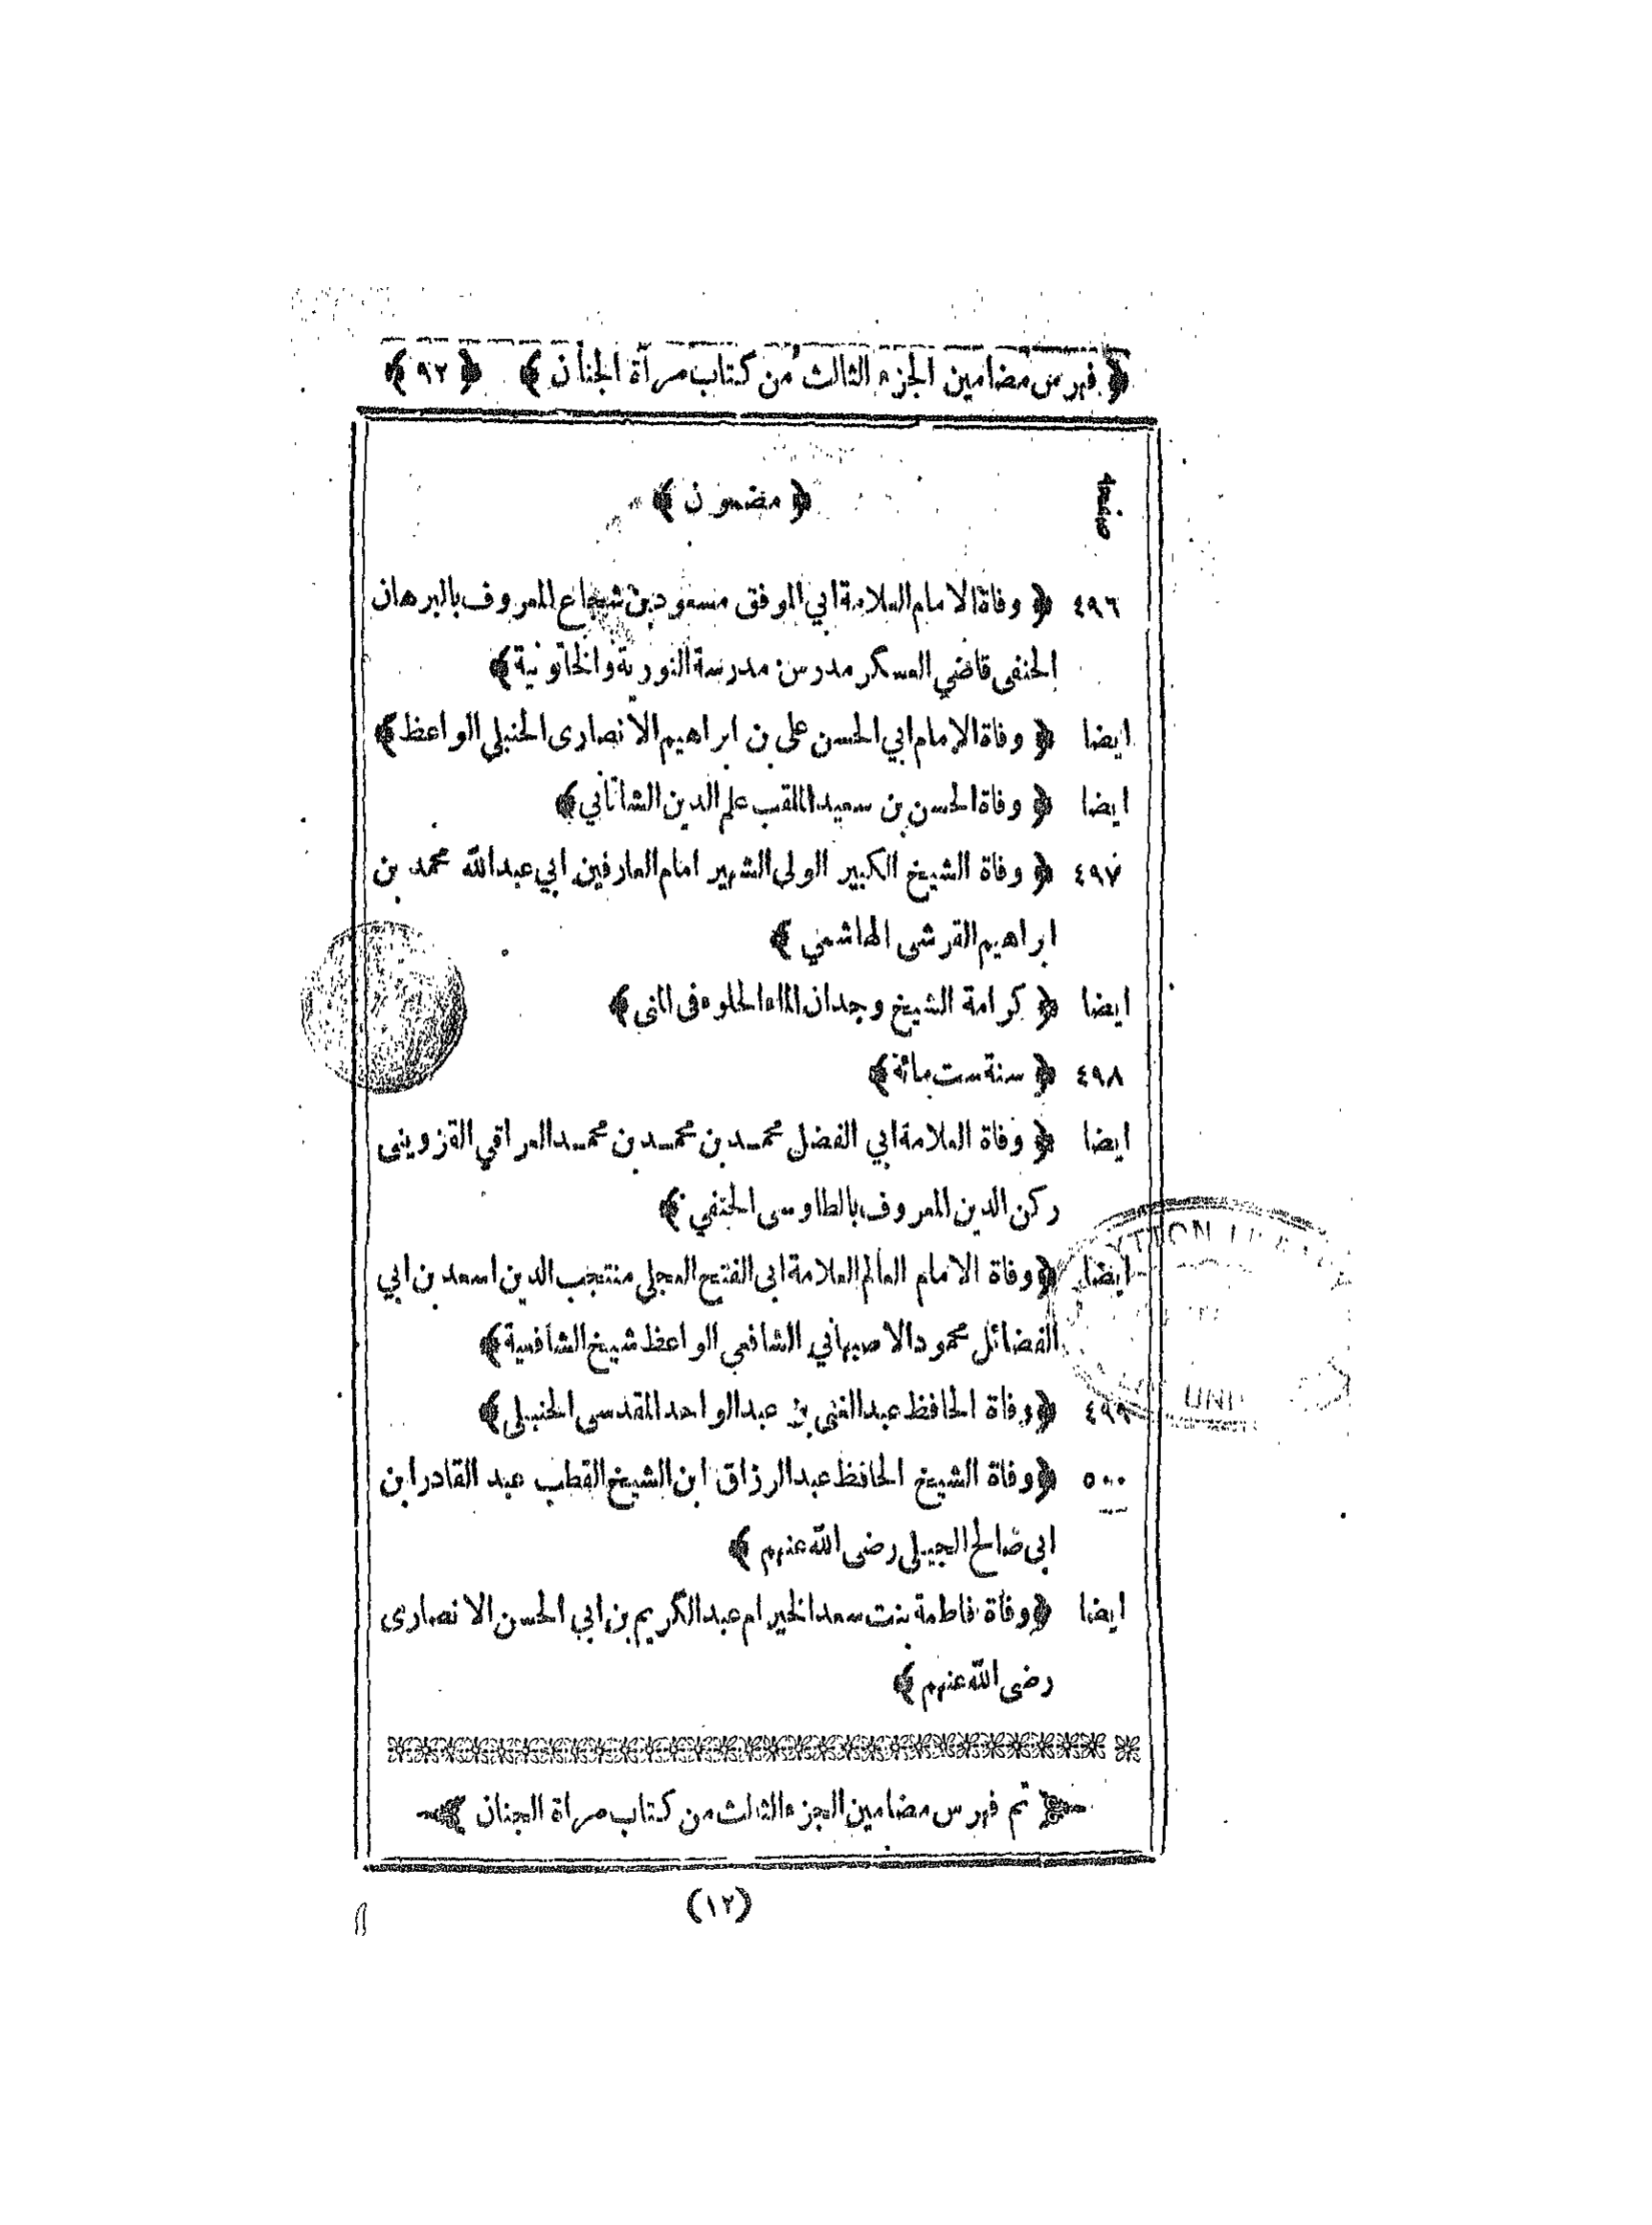 ﴿ فهرس مضامين الجزء الثالث من كتاب مرآة الجنان ﴾ ﴿ ٩٢ ﴾
صفحه ﴿ مضمون ﴾
٤٩٦ ﴿ وفاة الامام العلامة ابي الموفق مسعود بن شجاع المعروف بالبرهان
الحنفى قاضي العسكر مدرس مدرسة النورية والخاتونية ﴾
ايضا ﴿ وفاة الامام ابي الحسن على بن ابراهيم الانصارى الحنبلي الواعظ ﴾
ايضا ﴿ وفاة الحسن بن سعيد الملقب علم الدين الشاتاني ﴾
٤٩٧ ﴿ وفاة الشيخ الكبير الولى الشهير امام العارفين ابي عبد الله محمد بن
ابراهيم القرشى الهاشمي ﴾
ايضا ﴿ كرامة الشيخ وجدان الماء الحلوه فى المنى ﴾
٤٩٨ ﴿ سنة ست مائة ﴾
ايضا ﴿ وفاة العلامة ابي الفضل محمد بن محمد بن محمد العراقي القزوينى
ركن الدين المعروف بالطاوسى الحنفي ﴾
ايضا ﴿ وفاة الامام العالم العلامة ابى الفتح العجلي منتجب الدين اسعد بن ابي
الفضائل محمود الاصبهاني الشافعي الواعظ شيخ الشافعية ﴾
٤٩٩ ﴿ وفاة الحافظ عبد الغنى بن عبد الواحد المقدسى الحنبلى ﴾
٥٠٠ ﴿ وفاة الشيخ الحافظ عبد الرزاق ابن الشيخ القطب عبد القادر ابن
ابى صالح الجيلى رضى الله عنهم ﴾
ايضا ﴿ وفاة فاطمة بنت سعد الخير ام عبد الكريم بن ابي الحسن الانصارى
رضى الله عنهم ﴾
تم فهرس مضامين الجزء الثالث من كتاب مراة الجنان
(١٢)